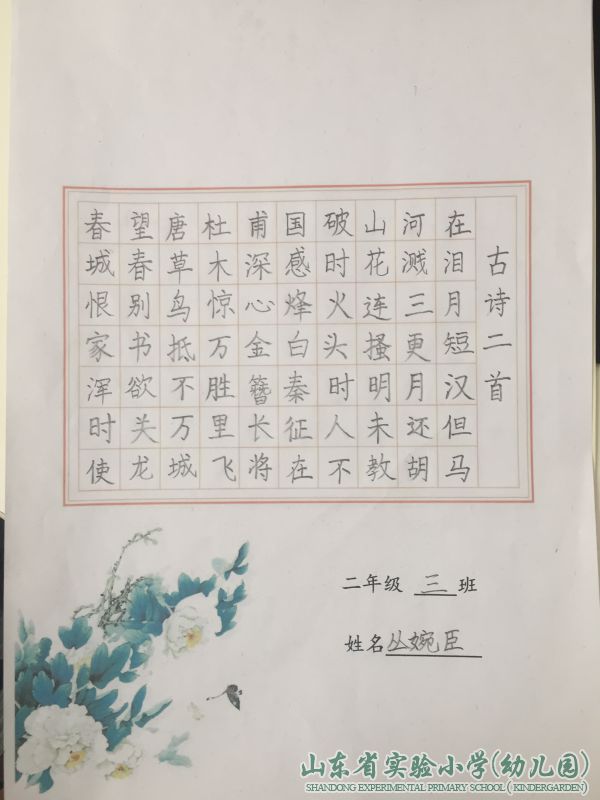 古诗二首
春望唐杜甫国破山河在
城春草木深感时花溅泪
恨别鸟惊心烽火连三月
家书抵万金白头搔更短
浑欲不胜簪秦时明月汉
时关万里长征人未还但
使龙城飞将在不教胡马
二年级 三 班
姓名丛婉臣
山东省实验小学(幼儿园)
SHANDONG EXPERIMENTAL PRIMARY SCHOOL ( KINDERGARDEN)